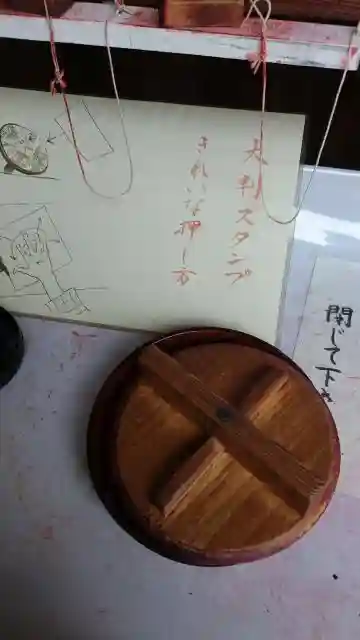 大判スタンプ
きれいな押し方
閉じて下さ